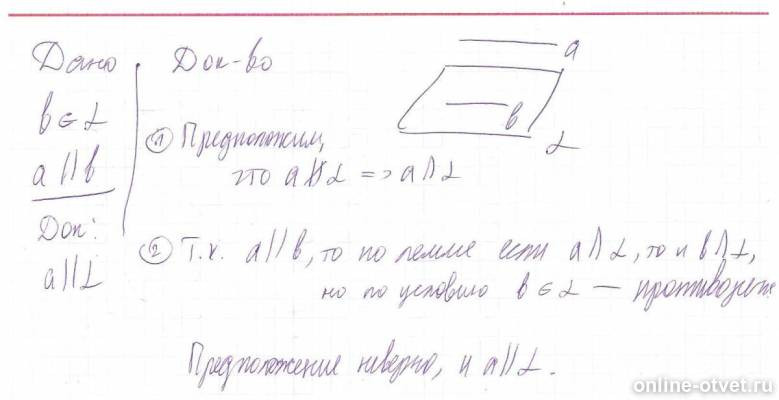 Дано
b ∈ α
a || b
Док:
a || α
Док-во
① Предположим,
что a ∦ α => a ∩ α
② Т.к. a || b, то по лемме если a ∩ α, то и b ∩ α,
но по условию b ∈ α — противореч
Предположение неверно, и a || α.
a
b
α
online-otvet.ru